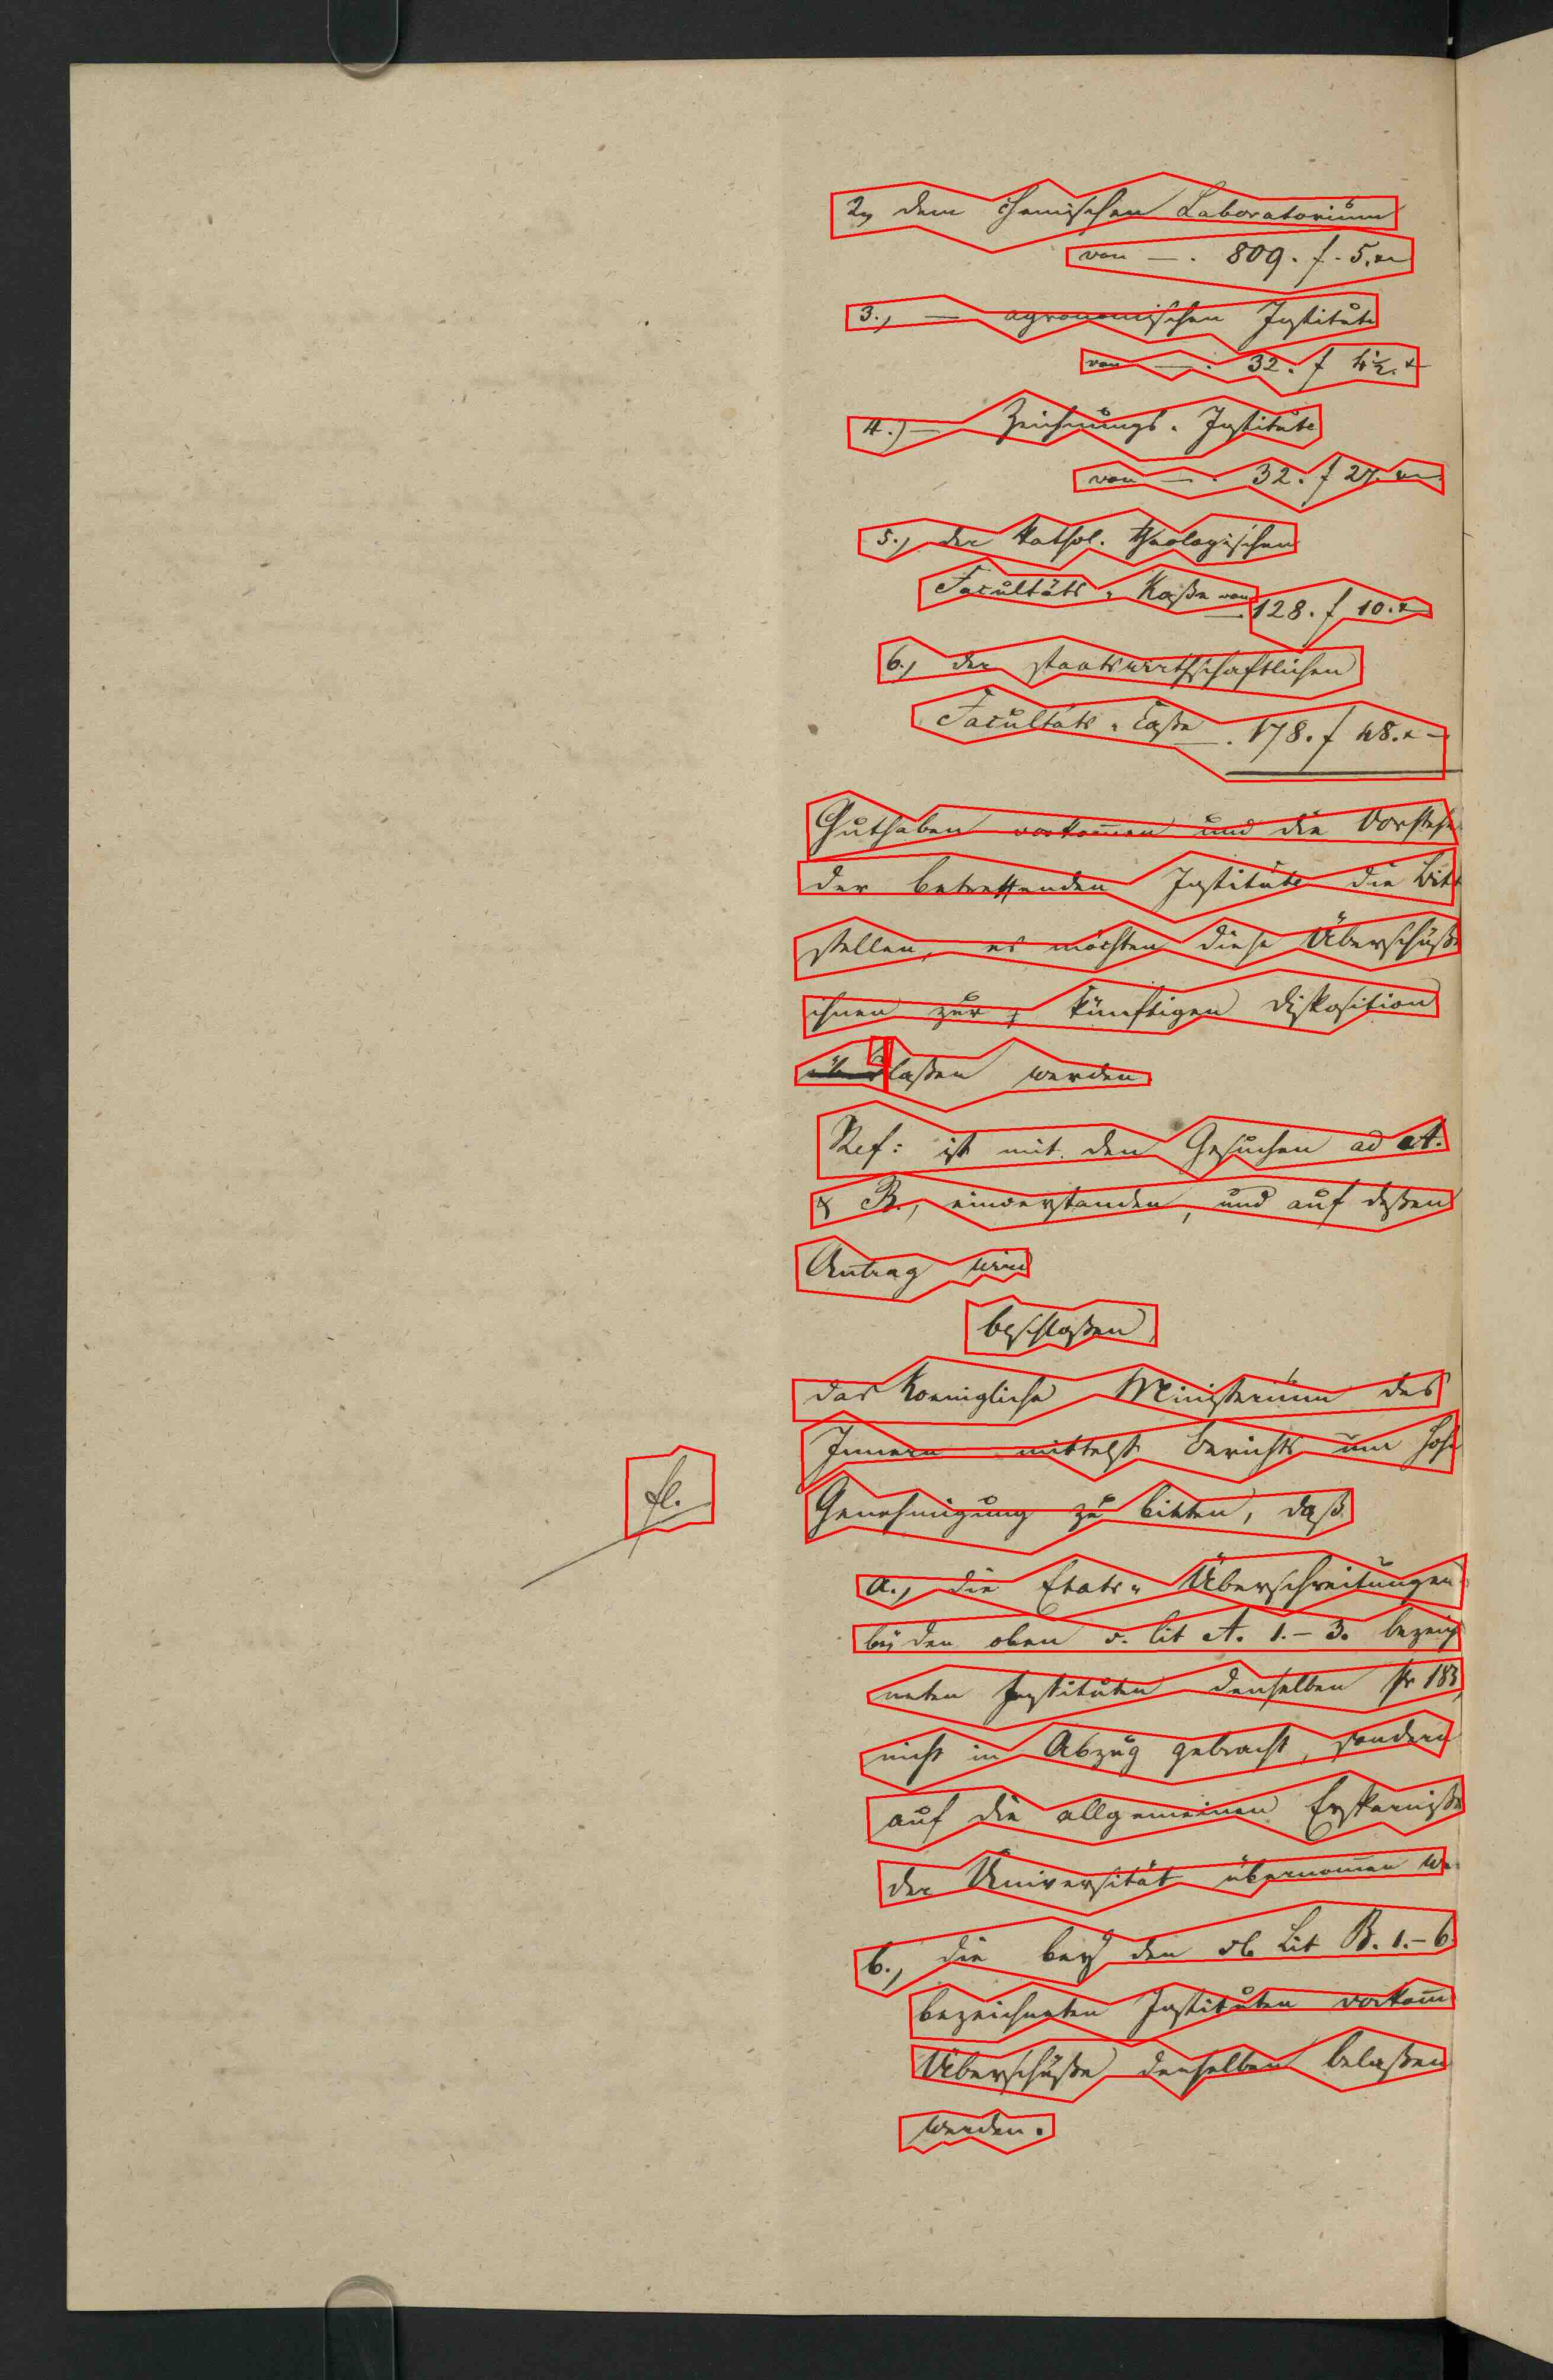 2, dem chemischen Laboratorium
von — . 809. f. 5. xr
3., — agronomischen Institute
von — . 32. f 4½. x
4.) — Zeichnungs- Institute
von — . 32. f 27. xr
5., der kathol. theologischen
Facultäts- Kaße von
— . 128. f 10. x
6., der staatswirthschaftlichen
Facultäts- Caße — . 178. f 48. x —
Guthaben vorkom̄en und die Vorstehe
der betreffenden Institute die Bitt
stellen, es möchten diese Überschüße
ihnen zur künftigen Disposition
laßen werden
Ref: ist mit den Gesuchen ad A.
& B., einverstanden, und auf deßen
Antrag wird
beschloßen
das Koenigliche Ministerium des
Innern mittelst Berichts um hohe
Genehmigung zu bitten, daß
fl.
a., die Etats- Überschreitungen
bey den oben s. lit A. 1.– 3. bezeich
neten Instituten denselben pr 183
nicht in Abzug gebracht, sondern
auf die allgemeinen Ersparniße
der Universität übernom̄en we
b., die bey den sb Lit B. 1.– 6.
bezeichneten Instituten vorkom̄
Überschüße denselben belaßen
werden.